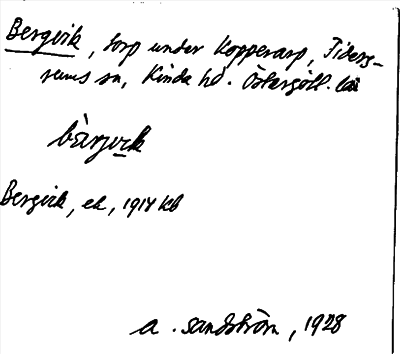 Bergvik, torp under Koppararp, Tiders-
rums sn, Kinda hd. Östergötl. län
bärjvik
Bergvik, eh, 1917 kb
A. Sandström, 1928